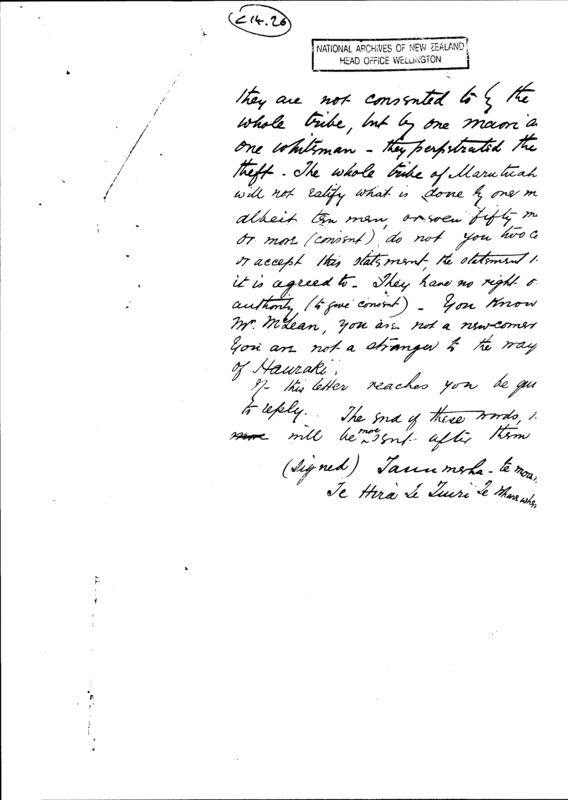 C14.26
NATIONAL ARCHIVES OF NEW ZEALAND
HEAD OFFICE WELLINGTON
they are not consented to by the
whole tribe, but by one maori a
one whiteman - they perpetrated the
theft. The whole tribe of Marutuah
will not ratify what is done by one m
albeit ten men, or even fifty m
or more (consent) do not you two c
or accept this statement, the statement
it is agreed to. They have no right o
authority (to give consent). You know
Mr. McLean, you are not a newcomer
You are not a stranger to the way
of Hauraki.
If this letter reaches you be qui
to reply. The end of these words,
will be more sent after them
(Signed)
Te Hira Te Tuiri Te